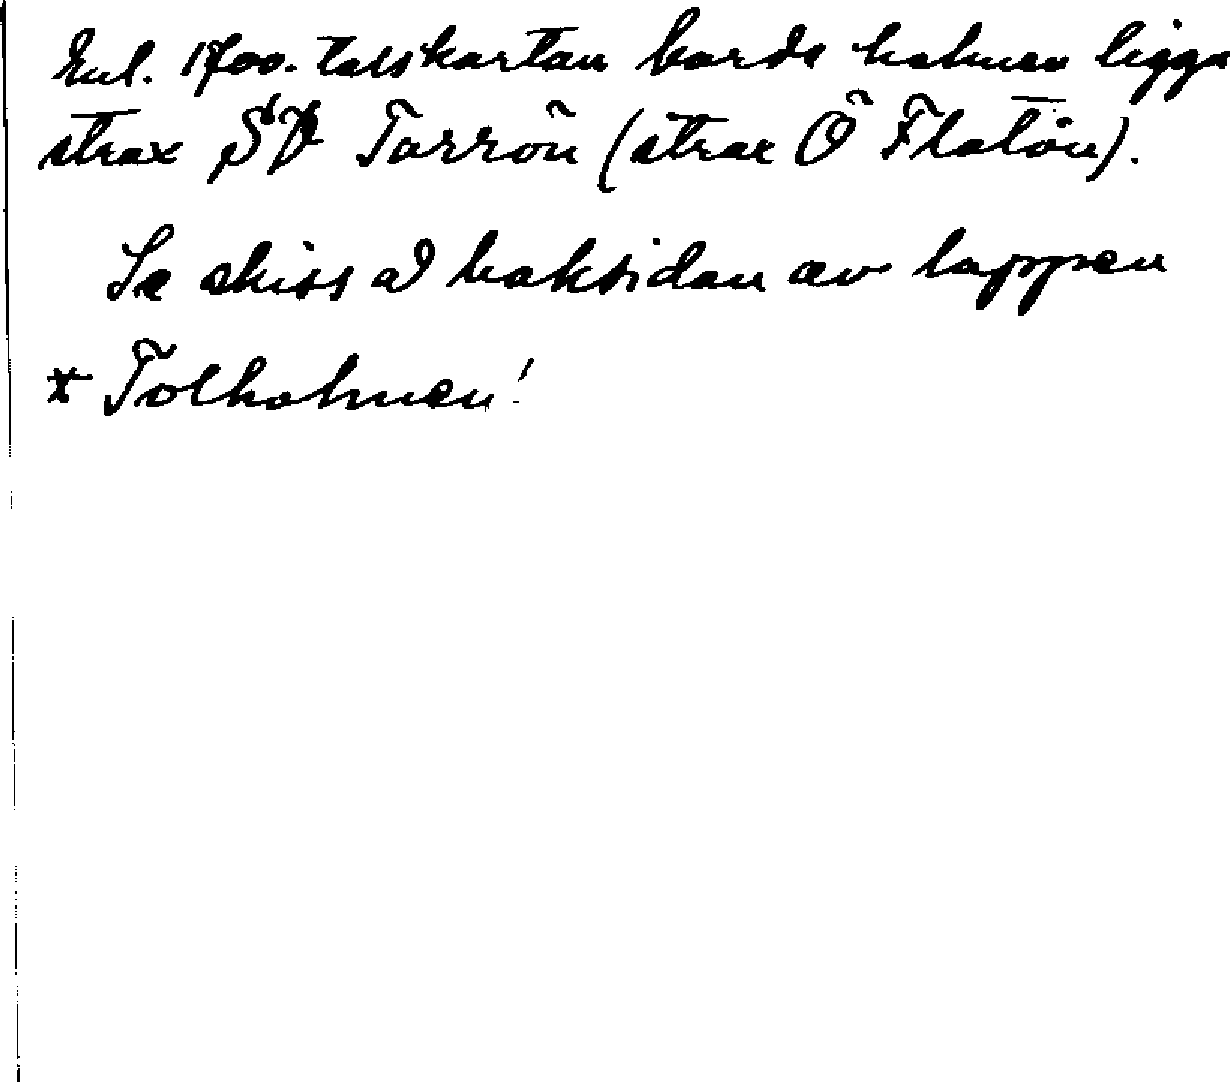 Enl. 1700-talskartan borde holmen ligga
strax SV Torrön (strax Ö Flatön).
Se skiss å baksidan av lappen
x Tolholmen!